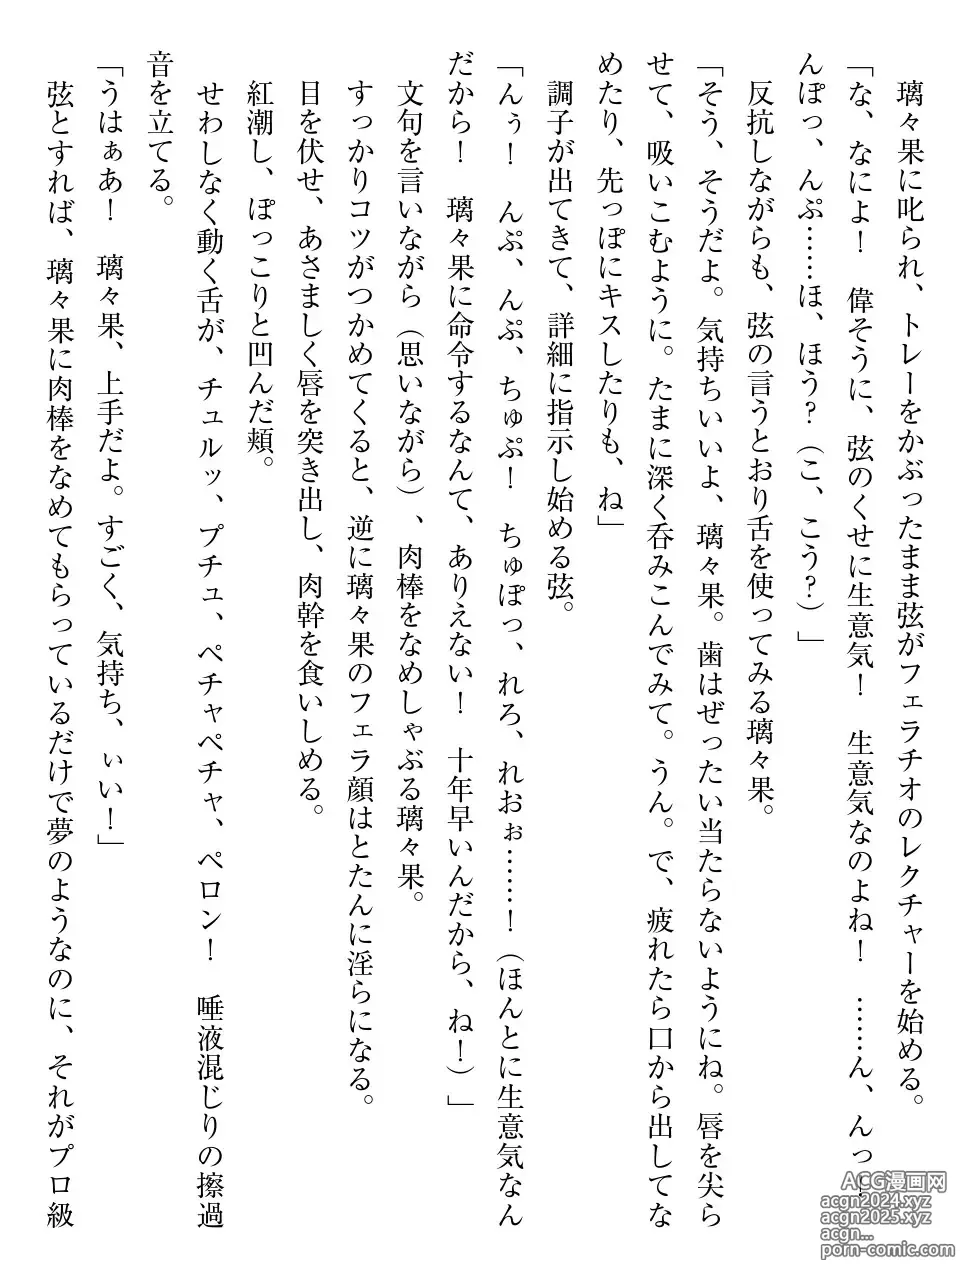 璃々果に叱られ、トレーをかぶったまま弦がフェラチオのレクチャーを始める。
「な、なによ！　偉そうに、弦のくせに生意気！　生意気なのよね！　……ん、んっ！
んぽっ、んぷ……ほ、ほう？（こ、こう？）」
反抗しながらも、弦の言うとおり舌を使ってみる璃々果。
「そう、そうだよ。気持ちいいよ、璃々果。歯はぜったい当たらないようにね。唇を尖ら
せて、吸いこむように。たまに深く呑みこんでみて。うん。で、疲れたら口から出してな
めたり、先っぽにキスしたりも、ね」
調子が出てきて、詳細に指示し始める弦。
「んぅ！　んぷ、んぷ、ちゅぷ！　ちゅぽっ、れろ、れおぉ……！（ほんとに生意気なん
だから！　璃々果に命令するなんて、ありえない！　十年早いんだから、ね！）」
文句を言いながら（思いながら）、肉棒をなめしゃぶる璃々果。
すっかりコツがつかめてくると、逆に璃々果のフェラ顔はとたんに淫らになる。
目を伏せ、あさましく唇を突き出し、肉幹を食いしめる。
紅潮し、ぽっこりと凹んだ頬。
せわしなく動く舌が、チュルッ、プチュ、ペチャペチャ、ペロン！　唾液混じりの擦過
音を立てる。
「うはぁあ！　璃々果、上手だよ。すごく、気持ち、ぃい！」
弦とすれば、璃々果に肉棒をなめてもらっているだけで夢のようなのに、それがプロ級
ACG漫画网
acgn2024.xyz
acgn2025.xyz
acgn...
porn-comic.com